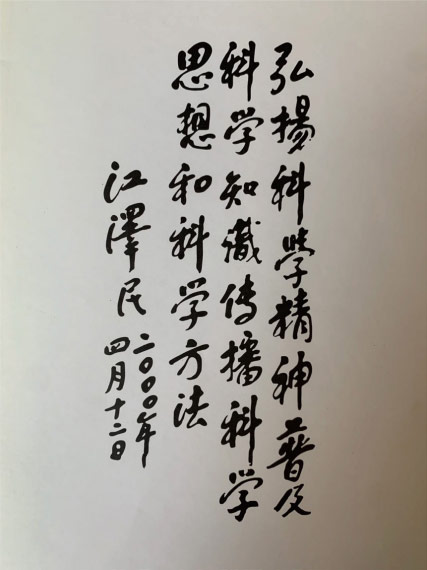 弘揚科学精神普及
科学知識传播科学
思想和科学方法
江澤民
二〇〇〇年
四月十二日